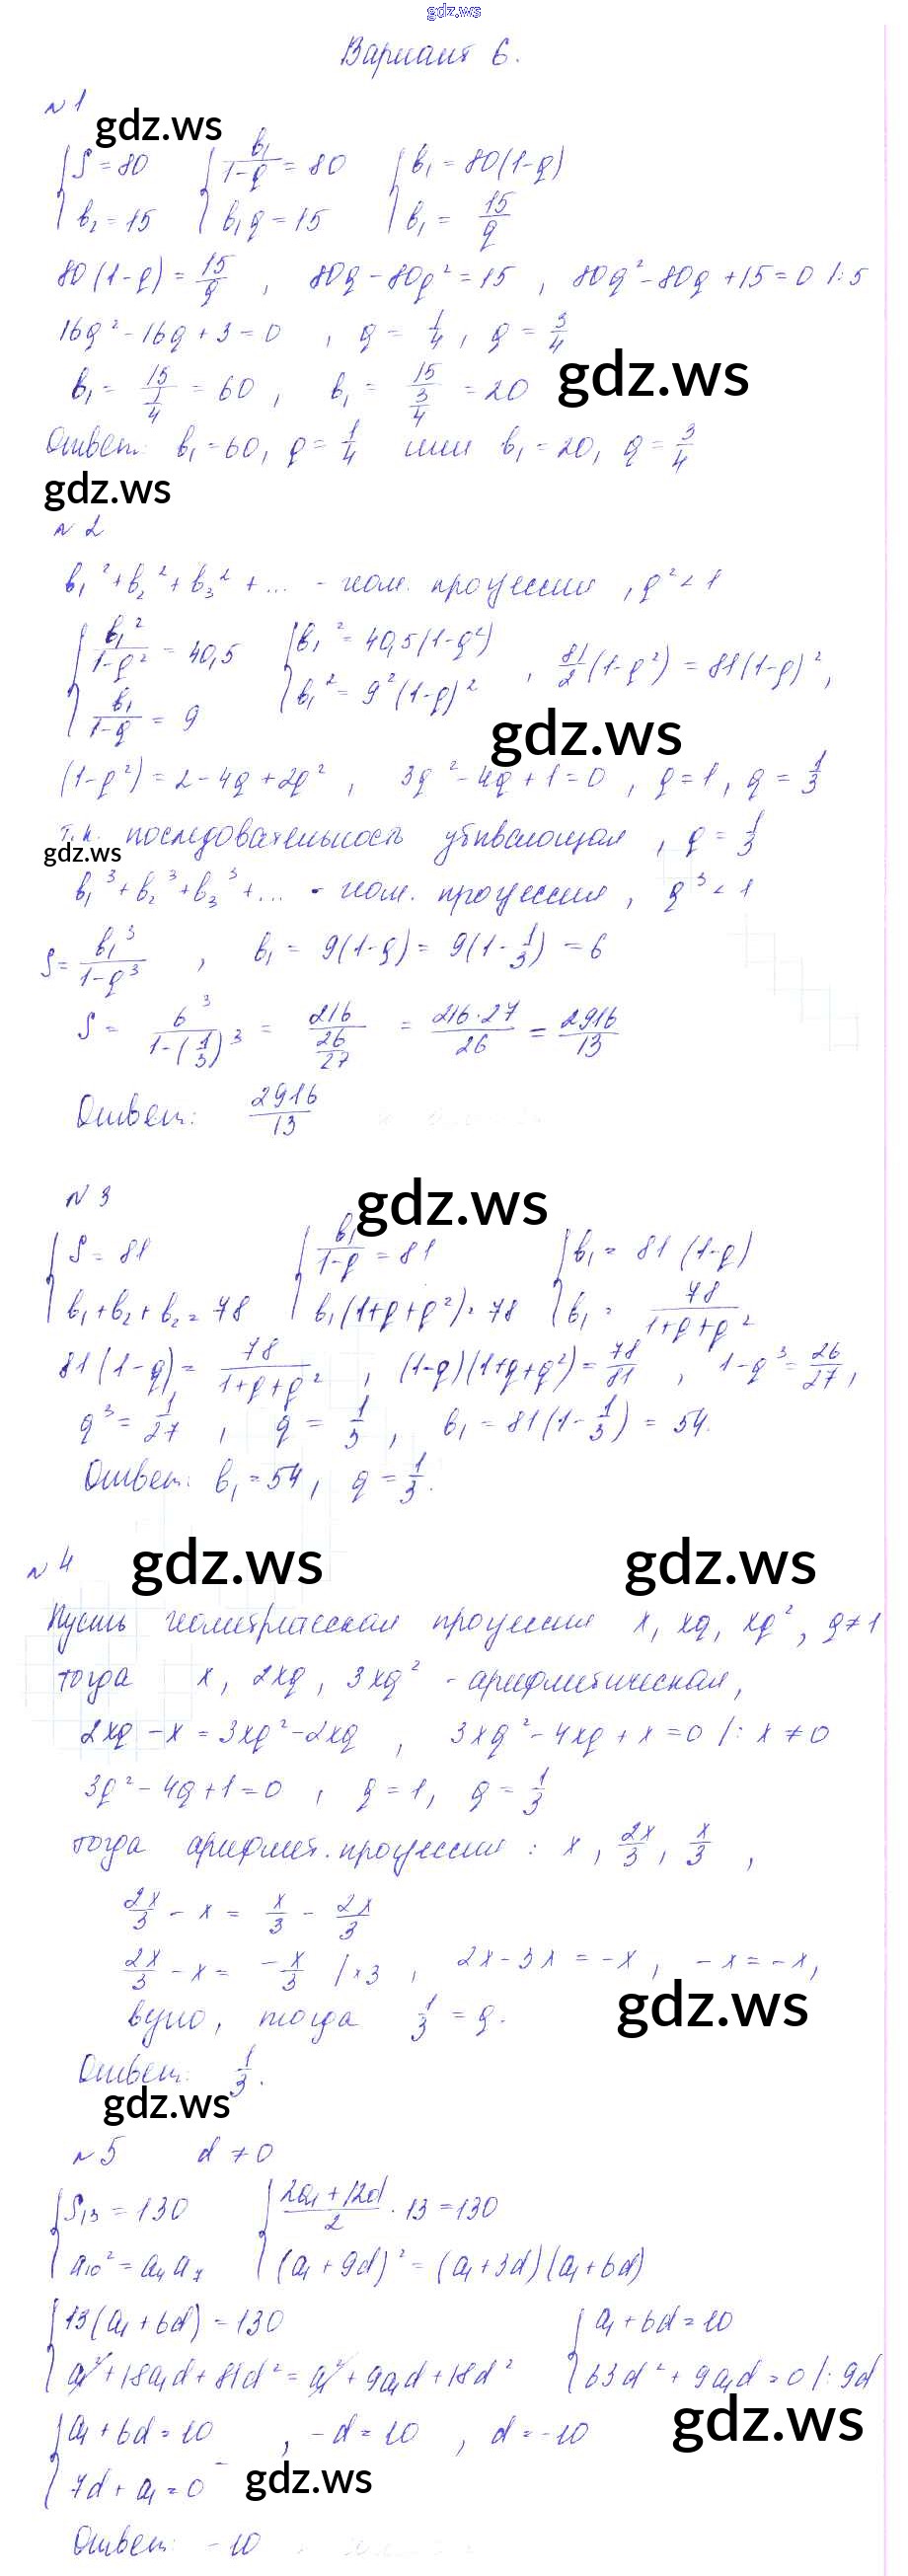 gdz.ws
Вариант 6.
№1
gdz.ws
{S = 80 {b₁/(1-q) = 80 {b₁ = 80(1-q)
{b₂ = 15 {b₁q = 15 {b₁ = 15/q
80(1-q) = 15/q , 80q - 80q² = 15 , 80q² - 80q + 15 = 0 |:5
16q² - 16q + 3 = 0 , q = 1/4 , q = 3/4
gdz.ws
b₁ = 15/(1/4) = 60 , b₁ = 15/(3/4) = 20
Ответ: b₁ = 60, q = 1/4 или b₁ = 20, q = 3/4
gdz.ws
№2
b₁² + b₂² + b₃² + ... - геом. прогрессия , q² < 1
{b₁²/(1-q²) = 40,5 {b₁² = 40,5(1-q²) , 81/2 (1-q²) = 81(1-q)² ,
{b₁/(1-q) = 9 {b₁² = 9²(1-q)²
gdz.ws
(1-q²) = 2 - 4q + 2q² , 3q² - 4q + 1 = 0 , q = 1 , q = 1/3
т.к. последовательность убывающая , q = 1/3
gdz.ws
b₁³ + b₂³ + b₃³ + ... - геом. прогрессия , q³ < 1
S = b₁³/(1-q³) , b₁ = 9(1-q) = 9(1-1/3) = 6
S = 6³/(1-(1/3)³) = 216/(26/27) = 216·27/26 = 2916/13
Ответ: 2916/13
№3
gdz.ws
{S = 81 {b₁/(1-q) = 81 {b₁ = 81(1-q)
{b₁ + b₂ + b₂ = 78 {b₁(1+q+q²) = 78 {b₁ = 78/(1+q+q²)
81(1-q) = 78/(1+q+q²) , (1-q)(1+q+q²) = 78/81 , 1-q³ = 26/27 ,
q³ = 1/27 , q = 1/3 , b₁ = 81(1-1/3) = 54.
Ответ: b₁ = 54, q = 1/3.
№4
gdz.ws gdz.ws
Пусть геометрическая прогрессия x, xq, xq², q ≠ 1
тогда x, 2xq, 3xq² - арифметическая,
2xq - x = 3xq² - 2xq , 3xq² - 4xq + x = 0 |: x ≠ 0
3q² - 4q + 1 = 0 , q = 1, q = 1/3
тогда арифмет. прогрессия : x, 2x/3, x/3 ,
2x/3 - x = x/3 - 2x/3
2x/3 - x = -x/3 |×3 , 2x - 3x = -x , -x = -x,
gdz.ws
тогда 1/3 = q.
Ответ: 1/3.
gdz.ws
№5 d ≠ 0
{S₁₃ = 130 {(2a₁ + 12d)/2 · 13 = 130
{a₁₀² = a₄ a₇ {(a₁ + 9d)² = (a₁ + 3d)(a₁ + 6d)
{13(a₁ + 6d) = 130 {a₁ + 6d = 10
{a₁² + 18a₁d + 81d² = a₁² + 9a₁d + 18d² {63d² + 9a₁d = 0 |: 9d
gdz.ws
{a₁ + 6d = 10 , -d = 10 , d = -10
{7d + a₁ = 0
gdz.ws
Ответ: -10